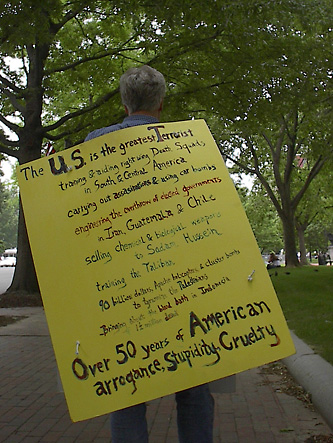 The U.S. is the greatest Terrorist
traning & aiding right wing Death Squads
in South & Central America
carrying out assassinations & using car bombs
engineering the overthrow of elected governments
in Iran, Guatemala & Chile
selling chemical & biological weapons
to Sadam Hussein
training the Taliban
90 billion dollars, Apache helicopters & cluster bombs
to tyrannize the Palestinians
Bringing about the blood bath in Indonesia
1.2 million dead
Over 50 years of American
arrogance, stupidity, Cruelty